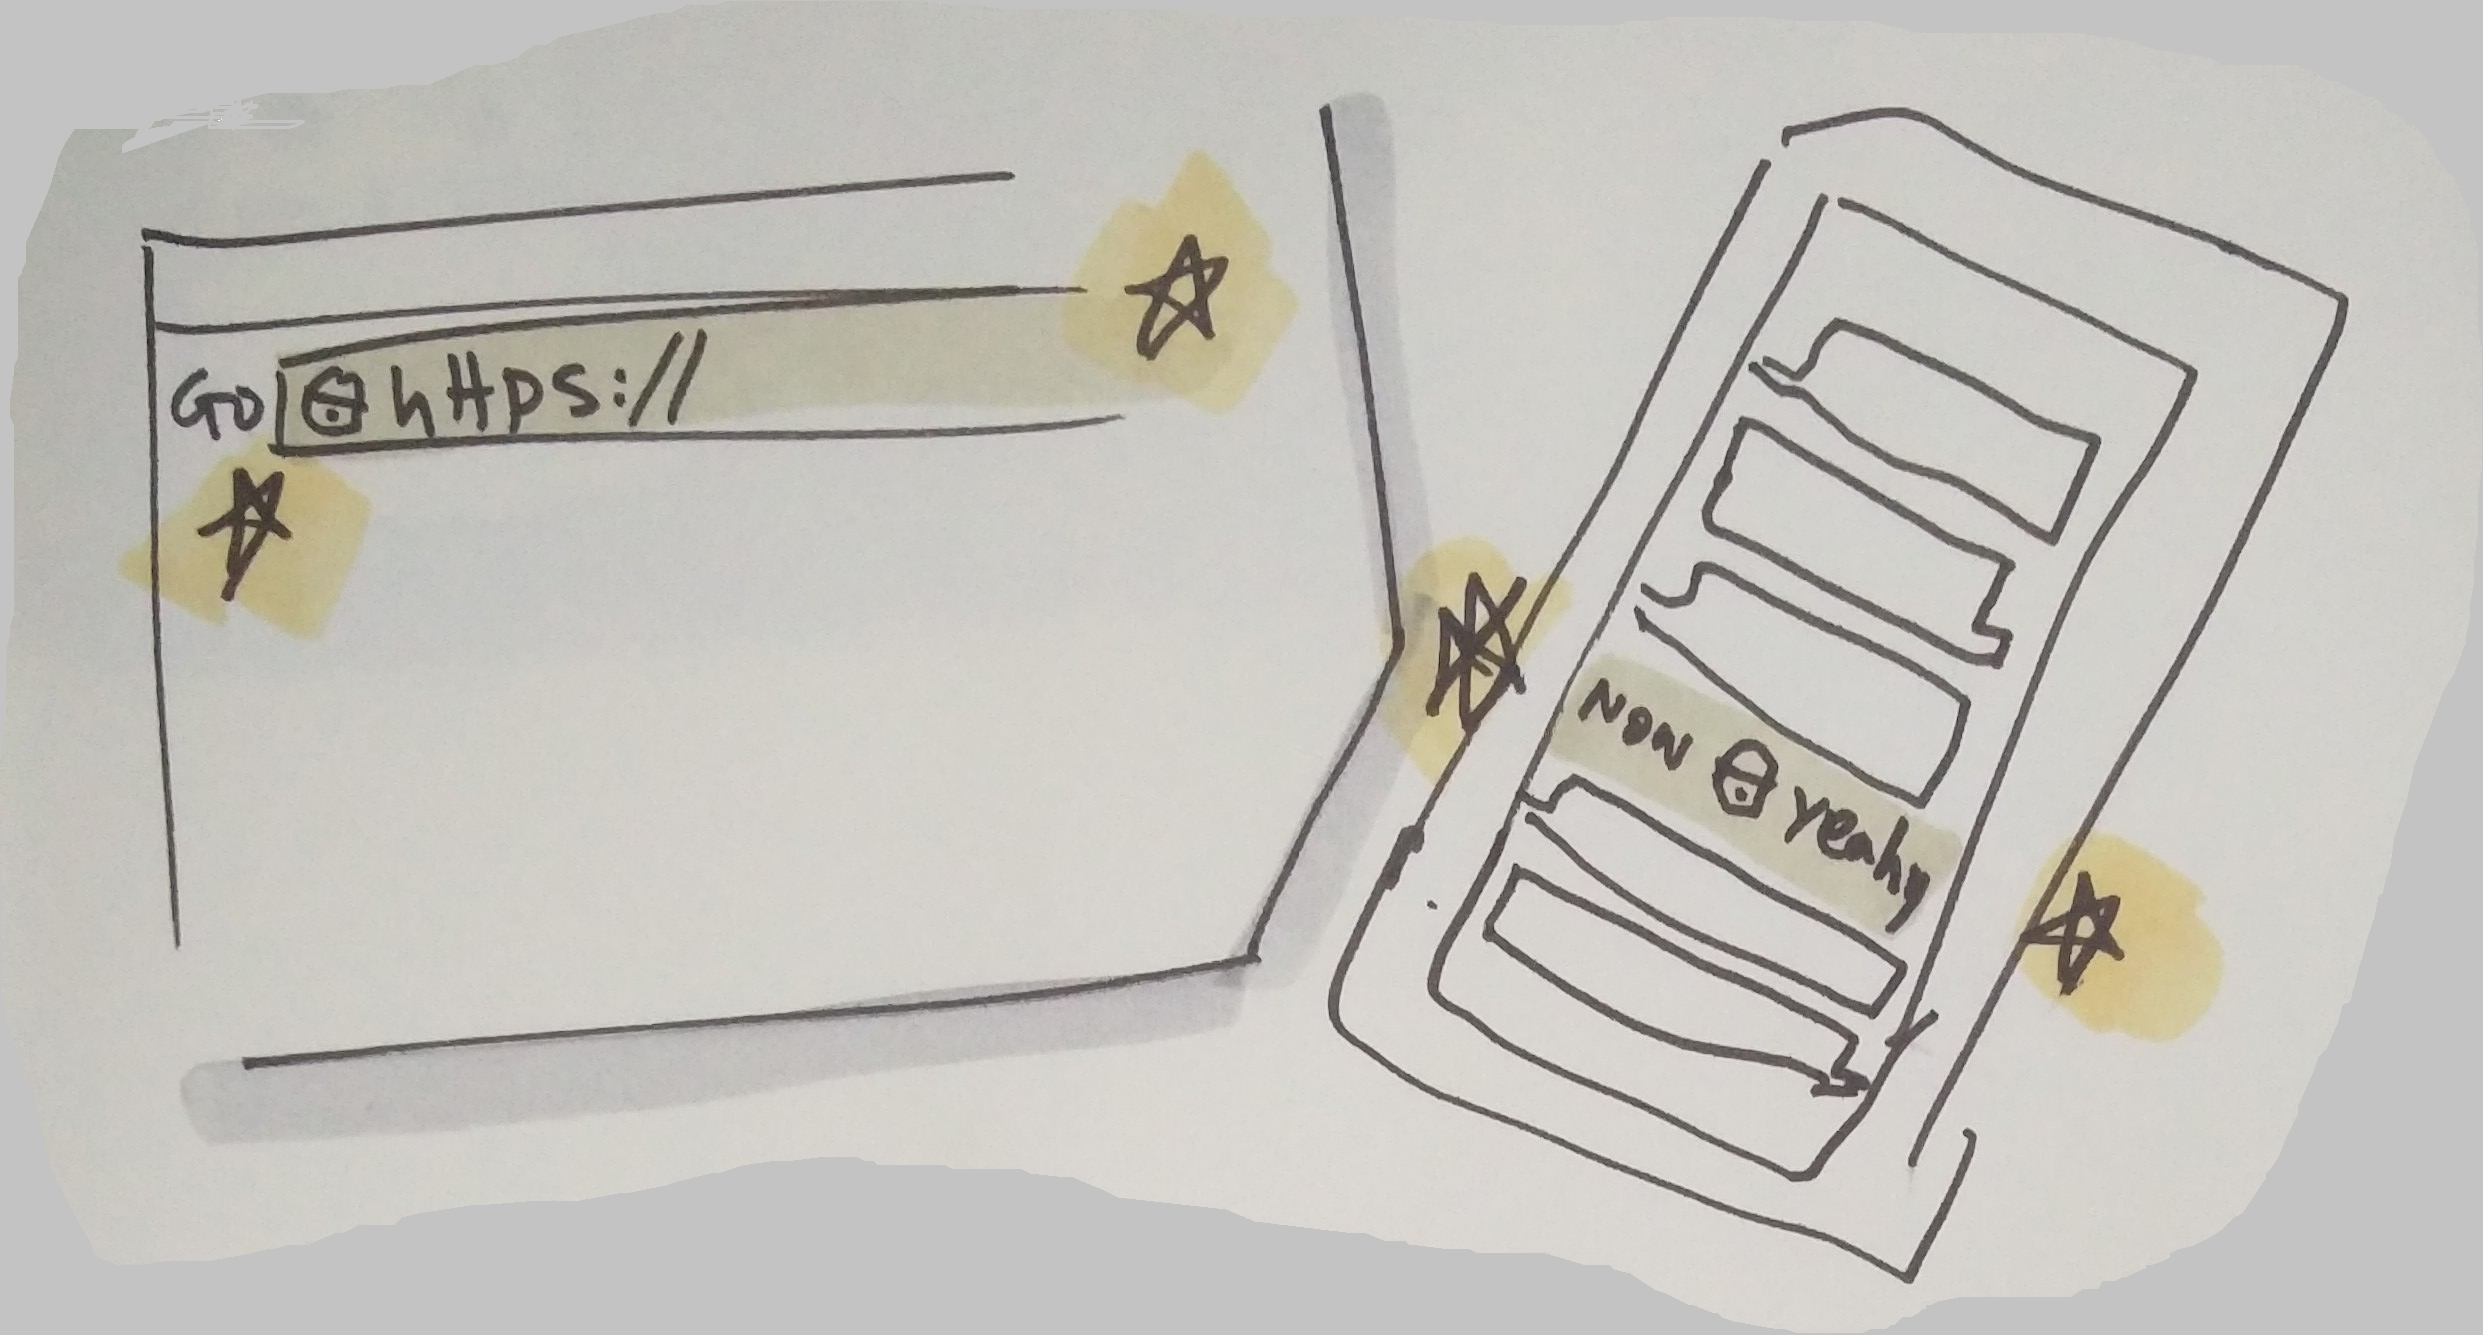 Go https://
Now yeahy